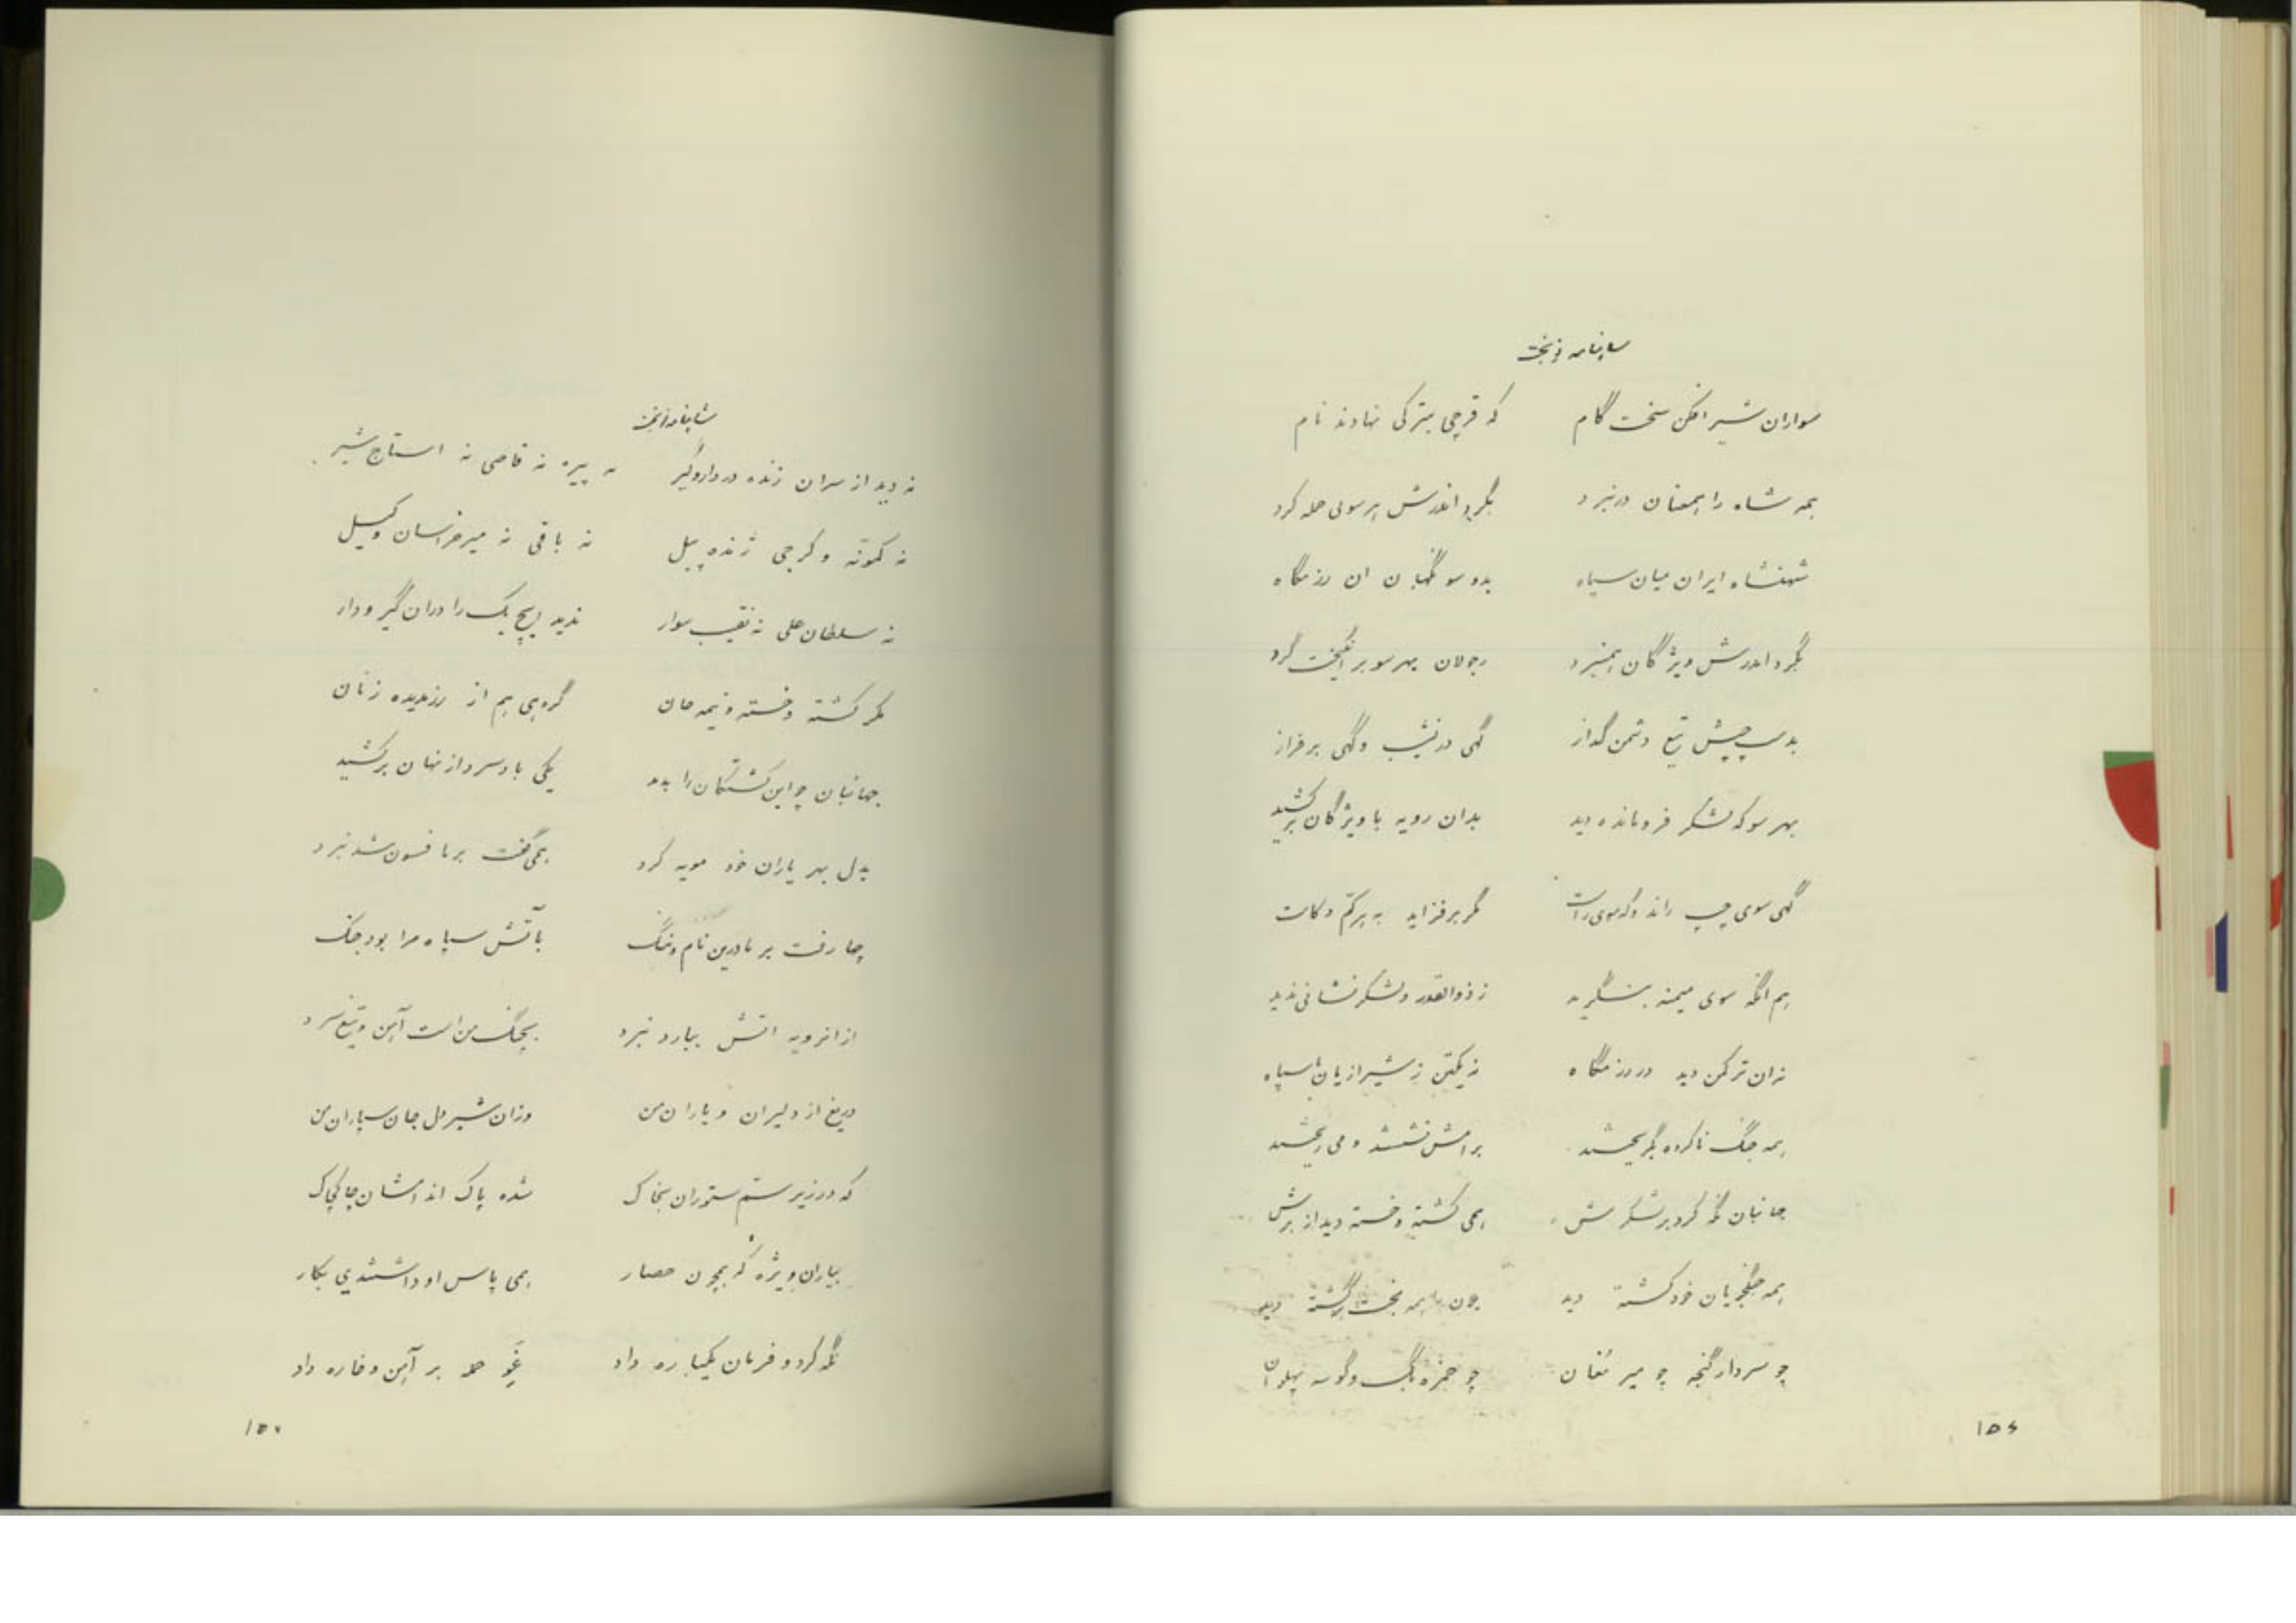 شاهنامه نوبخت
سواران شیر افکن سخت گام که قرچی بترکی نهادند نام
همه شاه را همعنان در نبرد بگرد اندرش هر سوئی حمله کرد
شهنشاه ایران میان سپاه بدو سو نگهبان ان رزمگاه
بگرد اندرش ویژگان همنبرد زجولان بهر سو بر انگیخت گرد
بدست چپش تیغ دشمن گداز گهی در نشیب و گهی بر فراز
بهر سو که لشکر فرومانده دید بدان رویه با ویژگان بر کشید
گهی سوی چپ راند و که سوی راست مگر بر فزاید به کم و کاست
هم انگه سوی میمنه بنگرید ز ذوالقدر و لشکر نشانی ندید
نه ان ترکمن دید در رزمگاه نه یکتن ز شیرازیان با سپاه
همه جنگ ناکرده بگریختند برامش نشستند و می ریختند
جهانبان نگه کرد بر لشکرش همی کشته و خسته دید از برش
همه جنگجویان خود کشته دید چون همه بخت برگشته دید
چو سردار گنجه چو میر مغان چو حمزه بگ و گوسه پهلوان
۱۵۶
شاهنامه نوبخت
نه دید از سران زنده در دار و گیر نه پیره نه قاصی نه استاج شیر
نه کمونه و کرجی ژنده پیل نه باقی نه میر خراسان وکیل
نه سلطان علی نه نقیب سوار ندید هیچ یک را دران گیر و دار
مگر کشته و خسته و نیمه جان گروهی هم از رزمدیده زنان
جهانبان چو این کشتگان را بدید یکی باد سرد از نهان بر کشید
بدل بهر یاران خود مویه کرد همی گفت بر ما فسون شد نبرد
چها رفت بر ما درین نام و ننگ با آتش سپاه مرا بود جنگ
از انرویه اتش ببارد نبرد بچنگ من است آهن و تیغ سرد
دریغ از دلیران و یاران من وزان شیر دل جان سپاران من
که در زیر سم ستوران بخاک شده پاک اندامشان چاکچاک
بیاران ویژه که همچون حصار همی پاس او داشتندی بکار
نگه کرد و فرمان یکباره داد غیو حمله بر آهن و خاره داد
۱۵۷